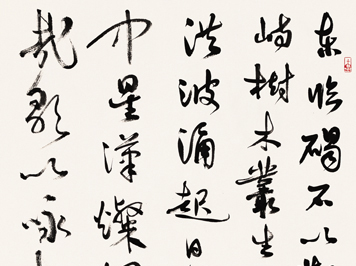 东临碣石以
峙樹木叢生
洪波涌起日
中星漢燦
哉歌以咏